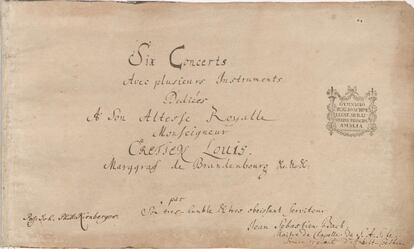 Six Concerts
Avec plusieurs Instruments
Dediées
A Son Altesse Royalle
Monseigneur
CRETIEN LOUIS.
Marggraf de Brandenbourg &c &c &c:
par
Son tres-humble & tres obeissant Serviteur
Jean Sebastien Bach,
Maitre de Chapelle de S. A. S. le
Prince regnant d'Anhalt-Coethen
Kirnberger.
GYMNASIO
AMALIA